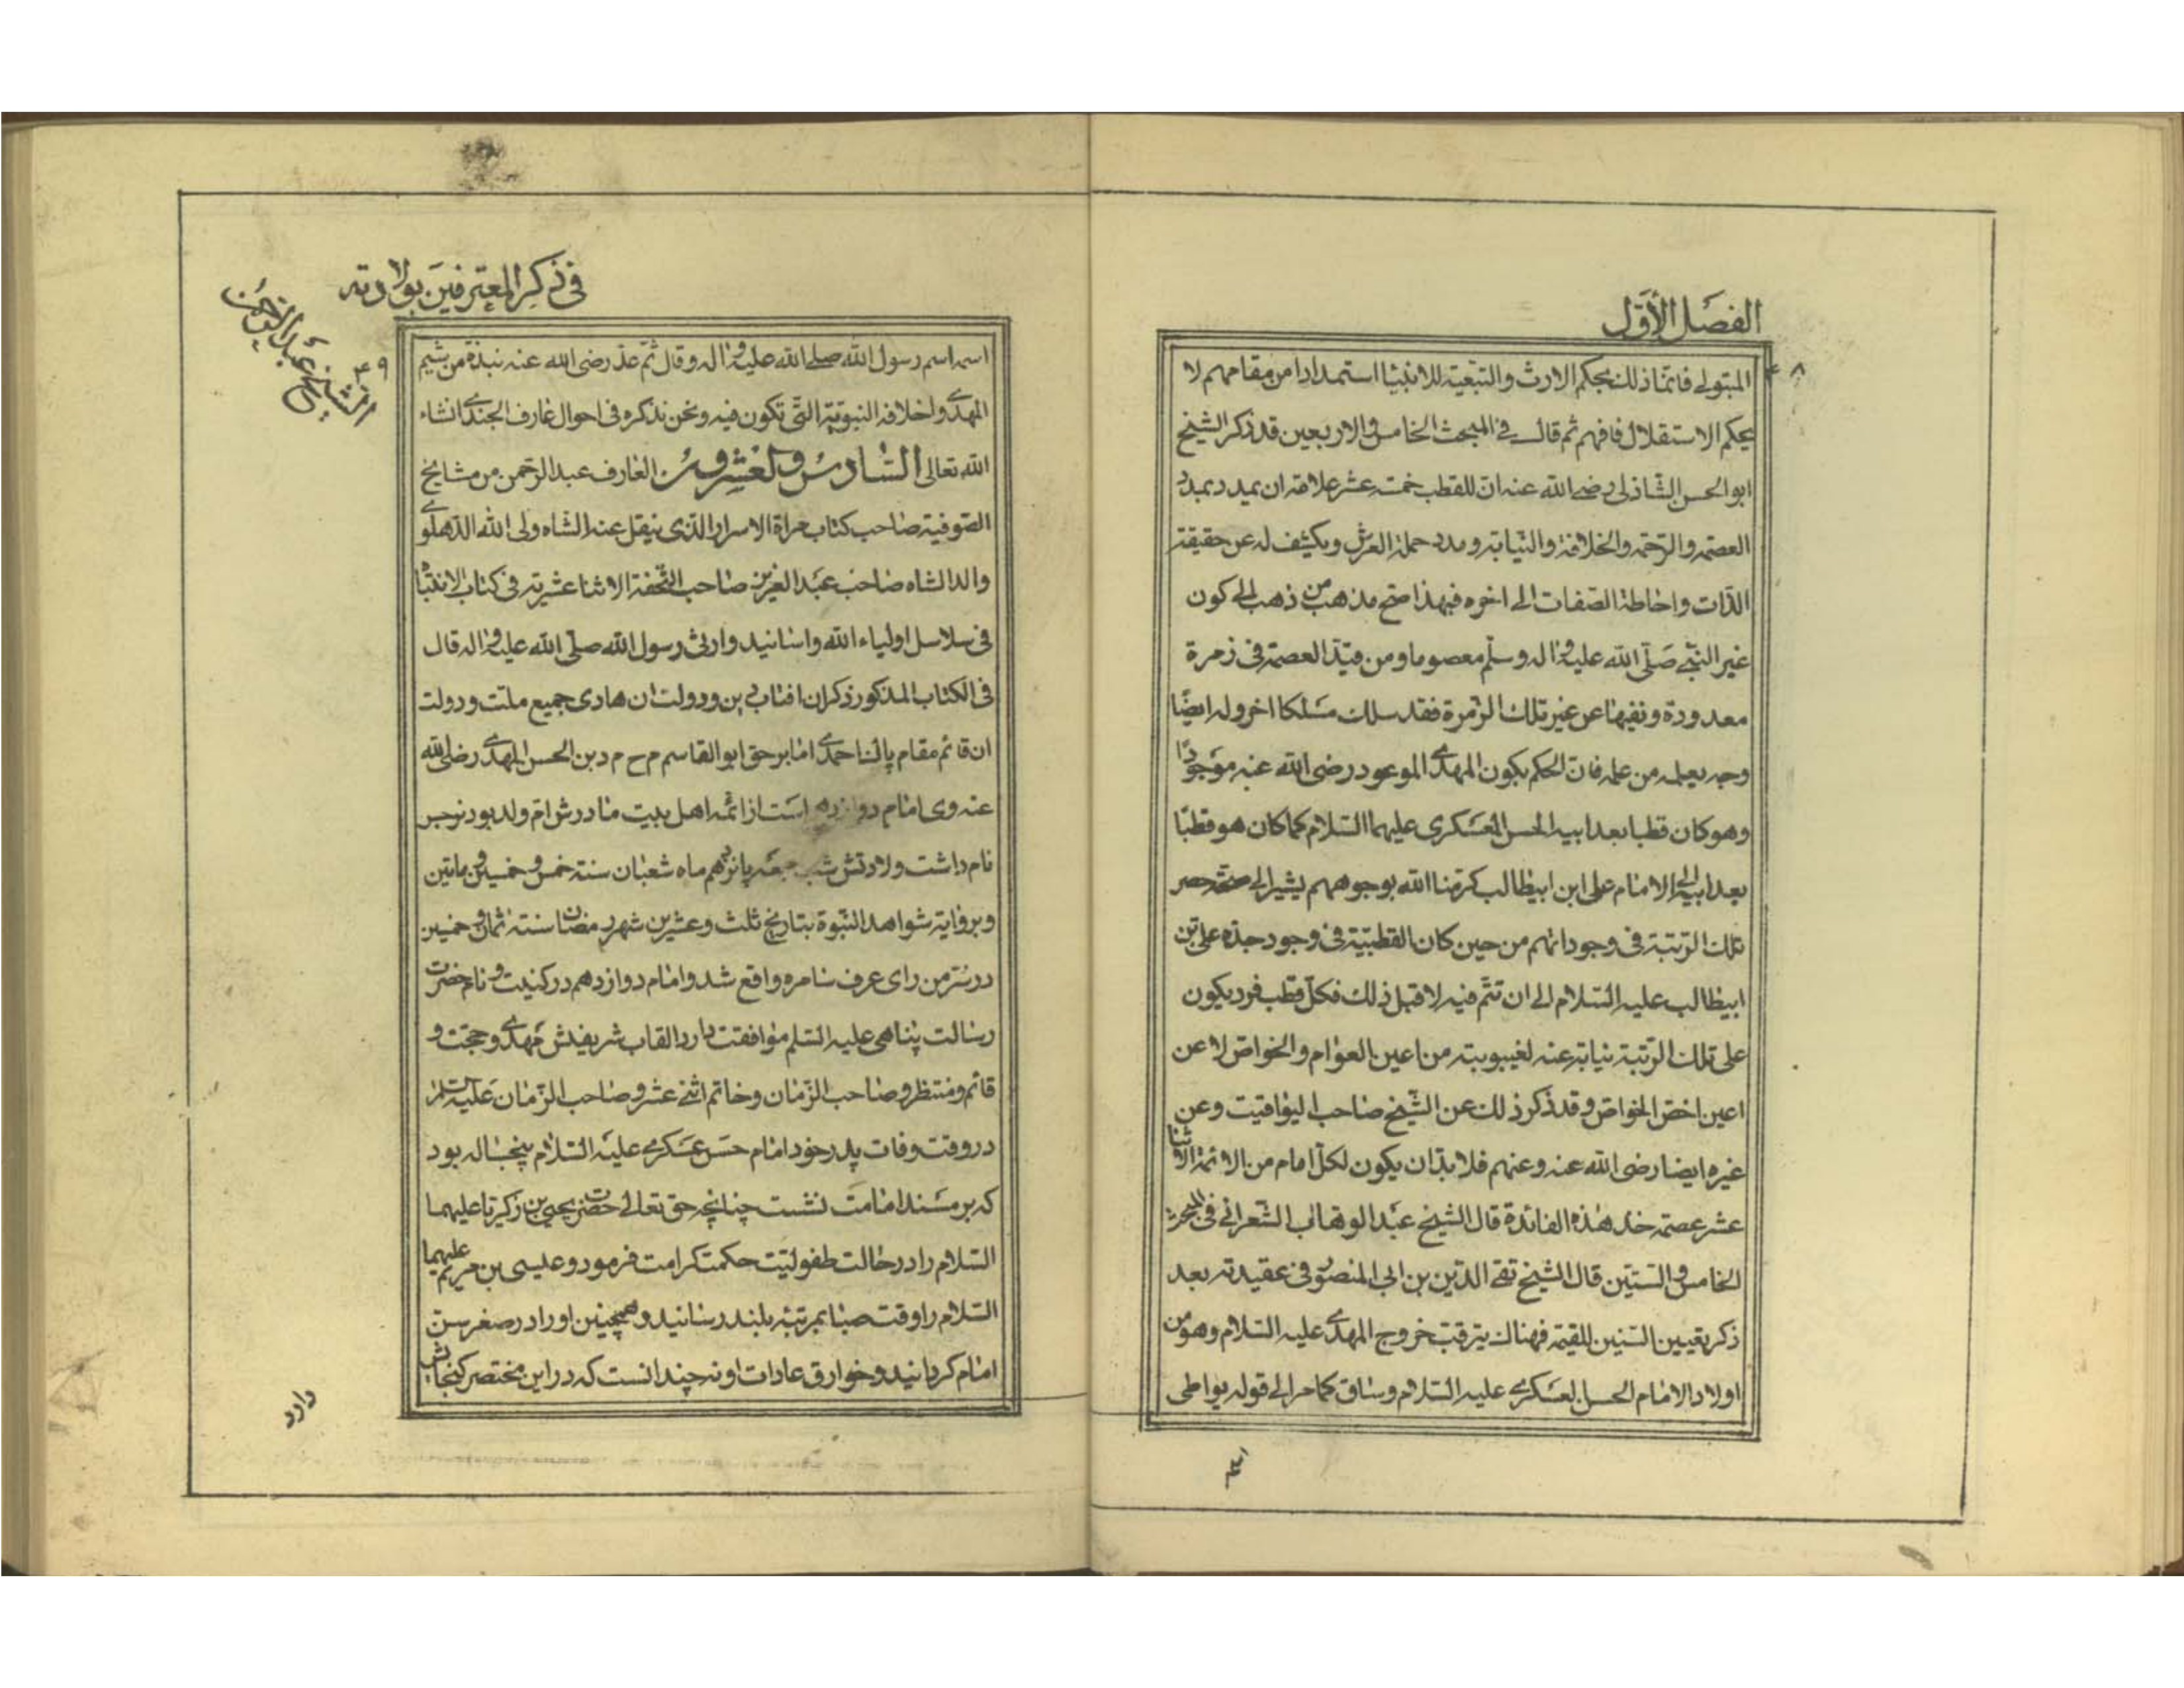 الفصل الأول
۴۸
المتولي فانما ذلك بحكم الارث والتبعية للانبيا استمدادا من مقامهم لا
بحكم الاستقلال فافهم ثم قال في المبحث الخامس والاربعين قد ذكر الشيخ
ابو الحسن الشاذلي رضي الله عنه ان للقطب خمسة عشر علامة ان يمدد بمدد
العصمة والرحمة والخلافة والنيابة ومدد حملة العرش ويكشف له عن حقيقة
الذات واحاطة الصفات الى اخره فبهذا صح مذهب من ذهب الى كون
غير النبي صلى الله عليه واله وسلم معصوما ومن قيد العصمة في زمرة
معدودة ونفيها عن غير تلك الزمرة فقد سلك مسلكا اخر وله ايضا
وجه يعلمه من علمه فان الحكم بكون المهدي الموعود رضي الله عنه موجودا
وهو كان قطبا بعد ابيه الحسن العسكري عليهما السلام كما كان هو قطبا
بعد ابيه الى الامام على ابن ابيطالب كرمنا الله بوجوههم يشير الى صحة حصر
تلك الرتبة في وجوداتهم من حين كان القطبية في وجود جده على بن
ابيطالب عليه السلام الى ان تتم فيه لا قبل ذلك فكل قطب فرد يكون
على تلك الرتبة نيابة عنه لغيبوبته من اعين العوام والخواص لا عن
اعين اخص الخواص وقد ذكر ذلك عن الشيخ صاحب اليواقيت وعن
غيره ايضا رضي الله عنه وعنهم فلا بد ان يكون لكل امام من الائمة الاثنا
عشر عصمة خذ هذه الفائدة قال الشيخ عبد الوهاب الشعراني في المبحث
الخامس والستين قال الشيخ تقي الدين بن ابي المنصور في عقيدته بعد
ذكر تعيين السنين للقيمة فهناك يترقب خروج المهدي عليه السلام وهو من
اولاد الامام الحسن العسكري عليه السلام وساق كما مر الى قوله يواطي
اسمه
في ذكر المعترفين بولادته
۴۹
الشيخ عبد الرحمن
اسمه اسم رسول الله صلى الله عليه واله وقال ثم عد رضى الله عنه نبذة من شيم
المهدي واخلاقه النبوية التي تكون فيه ونحن نذكره في احوال عارف الجندي انشاء
الله تعالى السادس والعشرون العارف عبد الرحمن من مشايخ
الصوفية صاحب كتاب مرآة الاسرار الذي ينقل عنه الشاه ولى الله الدهلوي
والد الشاه صاحب عبد العزيز صاحب التحفة الاثنا عشرية في كتاب الانتباه
في سلاسل اولياء الله واسانيد وارثى رسول الله صلى الله عليه واله قال
في الكتاب المذكور ذكر ان افتاب دين ودولت ان هادى جميع ملت ودولت
ان قائم مقام پاك احمدي امام برحق ابو القاسم م ح م د بن الحسن المهدي رضى الله
عنه وى امام دوازدهم است از ائمه اهل بيت مادرش ام ولد بود نرجس
نام داشت ولادتش شب جمعه پانزدهم ماه شعبان سنة خمس وخمسين وماتين
وبروايت شواهد النبوة بتاريخ ثلث وعشرين شهر رمضان سنة ثمان وخمسين
در سر من راى عرف سامره واقع شد وامام دوازدهم در كنيت ونام حضرت
رسالت پناهى عليه السلم موافقت دارد القاب شريفش مهدي وحجت و
قائم ومنتظر وصاحب الزمان وخاتم اثنى عشر وصاحب الزمان عليه السلام
در وقت وفات پدر خود امام حسن عسكري عليه السلام پنجساله بود
كه بر مسند امامت نشست چنانچه حق تعالى حضرت يحيى بن زكريا عليهما
السلام را در حالت طفوليت حكمت كرامت فرمود وعيسى بن مريم عليهما
السلام را وقت صبا بمرتبه بلند رسانيد وهمچنين او را در صغر سن
امام گردانيد وخوارق عادات او نه چندانست كه در اين مختصر گنجايش
دارد